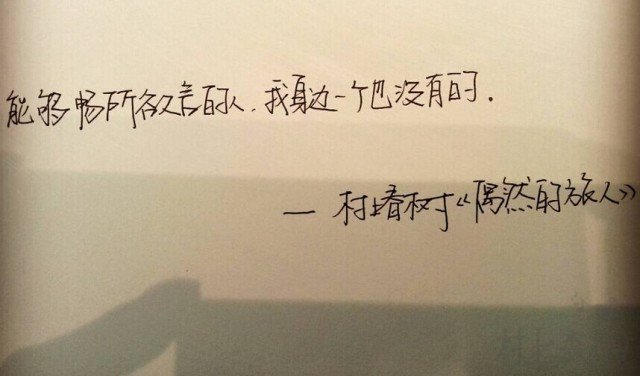 能够畅所欲言的人,我身边一个也没有的.
— 村上春树《偶然的旅人》